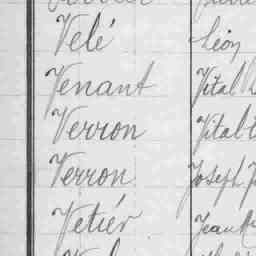 Velé Léon
Venant Vital
Verron Vital
Verron Joseph
Vetiér Jean